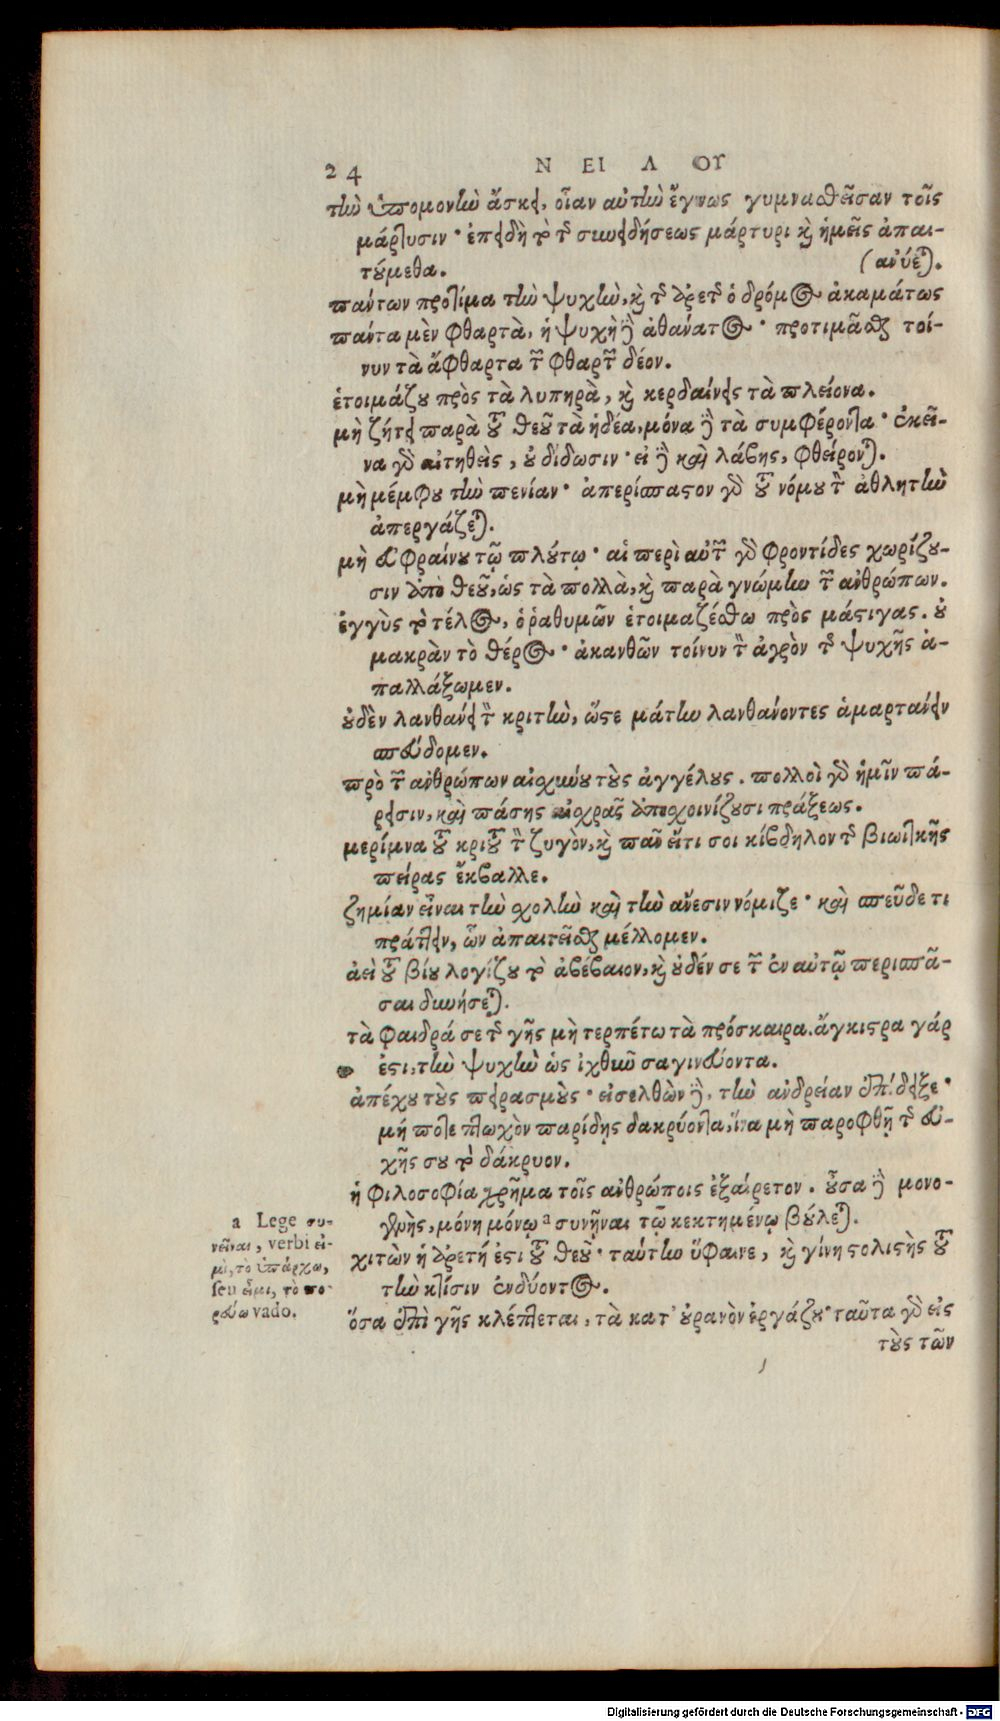 24 ΝΕΙΛΟΥ
τὴν ὑπομονὴν ἄσκει, οἵαν αὐτὴν ἔγνως γυμνασθεῖσαν τοῖς
μάρτυσιν· ἐπειδὴ τὸ τῆς συνειδήσεως μάρτυρι καὶ ἡμεῖς ἀπαι-
τούμεθα.
(ανύεται).
πάντων προτίμα τὴν ψυχὴν, καὶ τῆς ἀρετῆς ὁ δρόμος ἀκαμάτως
πάντα μὲν φθαρτὰ, ἡ ψυχὴ δὲ ἀθάνατος· προτιμᾶσθαι τοί-
νυν τὰ ἄφθαρτα τῶν φθαρτῶν δέον.
ἑτοιμάζου πρὸς τὰ λυπηρὰ, καὶ κερδαίνεις τὰ πλείονα.
μὴ ζήτει παρὰ τοῦ θεοῦ τὰ ἡδέα, μόνα δὲ τὰ συμφέροντα· ἐκεῖ-
να γὰρ αἰτηθεὶς, οὐ δίδωσιν· εἰ δὲ καὶ λάβης, φθείρονται.
μὴ μέμφου τὴν πενίαν· ἀπερίσπαστον γὰρ τοῦ νόμου τὸν ἀθλητὴν
ἀπεργάζεται.
μὴ εὐφραίνου τῷ πλούτῳ· αἱ περὶ αὐτῶν γὰρ φροντίδες χωρίζου-
σιν ἀπὸ θεοῦ, ὡς τὰ πολλὰ, καὶ παρὰ γνώμην τῶν ἀνθρώπων.
ἐγγὺς τὸ τέλος, ὁ ῥαθυμῶν ἑτοιμαζέσθω πρὸς μάστιγας. οὐ
μακρὰν τὸ θέρος· ἀκανθῶν τοίνυν τὸν ἀγρὸν τῆς ψυχῆς ἀ-
παλλάξωμεν.
οὐδὲν λανθάνει τὸν κριτὴν, ὥστε μάτην λανθάνοντες ἁμαρτάνειν
σπεύδομεν.
πρὸ τῶν ἀνθρώπων αἰσχύνου τοὺς ἀγγέλους. πολλοὶ γὰρ ἡμῖν πά-
ρεισιν, καὶ πάσης αἰσχρᾶς ἀποσχοινίζουσι πράξεως.
μερίμνα τοῦ κριτοῦ τὸν ζυγὸν, καὶ πᾶν εἴ τι σοι κίβδηλον τῆς βιωτικῆς
πείρας ἔκβαλλε.
ζημίαν εἶναι τὴν σχολὴν καὶ τὴν ἄνεσιν νόμιζε· καὶ σπεῦδε τι
πράττειν, ὧν ἀπαιτεῖσθαι μέλλομεν.
ἀεὶ τοῦ βίου λογίζου τὸ ἀβέβαιον, καὶ οὐδέν σε τῶν ἐν αὐτῷ περισπᾶ-
σαι δυνήσεται.
τὰ φαιδρά σε τῆς γῆς μὴ τερπέτω τὰ πρόσκαιρα. ἄγκιστρα γάρ
ἐστι, τὴν ψυχὴν ὡς ἰχθὺν σαγηνεύοντα.
ἀπέχου τοὺς πειρασμοὺς· εἰσελθὼν δὲ, τὴν ἀνδρείαν ἐπίδειξε·
μή ποτε πτωχὸν παρίδης δακρύοντα, ἵνα μὴ παροφθῇ τῆς εὐ-
χῆς σου τὸ δάκρυον.
ἡ φιλοσοφία χρῆμα τοῖς ἀνθρώποις ἐξαίρετον. οὖσα δὲ μονο-
γενὴς, μόνη μόνῳ a συνῆναι τῷ κεκτημένῳ βούλεται.
χιτὼν ἡ ἀρετή ἐστι τοῦ θεοῦ· ταύτην ὕφαινε, καὶ γίνη στολιστὴς τοῦ
τὴν κτίσιν ἐνδύοντος.
ὅσα ἐπὶ γῆς κλέπτεται, τὰ κατ' οὐρανὸν ἐργάζου· ταῦτα γὰρ εἰς
τοὺς τῶν
a Lege συ-
νεῖναι, verbi εἰ-
μὶ, τὸ ὑπάρχω,
seu εἶμι, τὸ πο-
ρεύω vado.
Digitalisierung gefördert durch die Deutsche Forschungsgemeinschaft - DFG